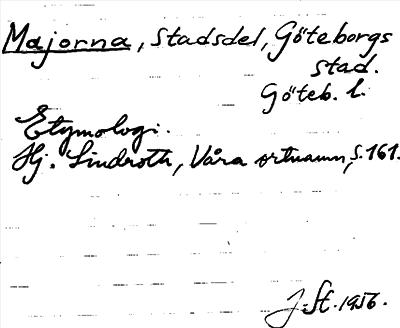 Majorna, Stadsdel, Göteborgs
stad.
Göteb. l.
Etymologi.
Hj. Lindroth, Våra ortnamn, s. 161.
J. St. 1956.